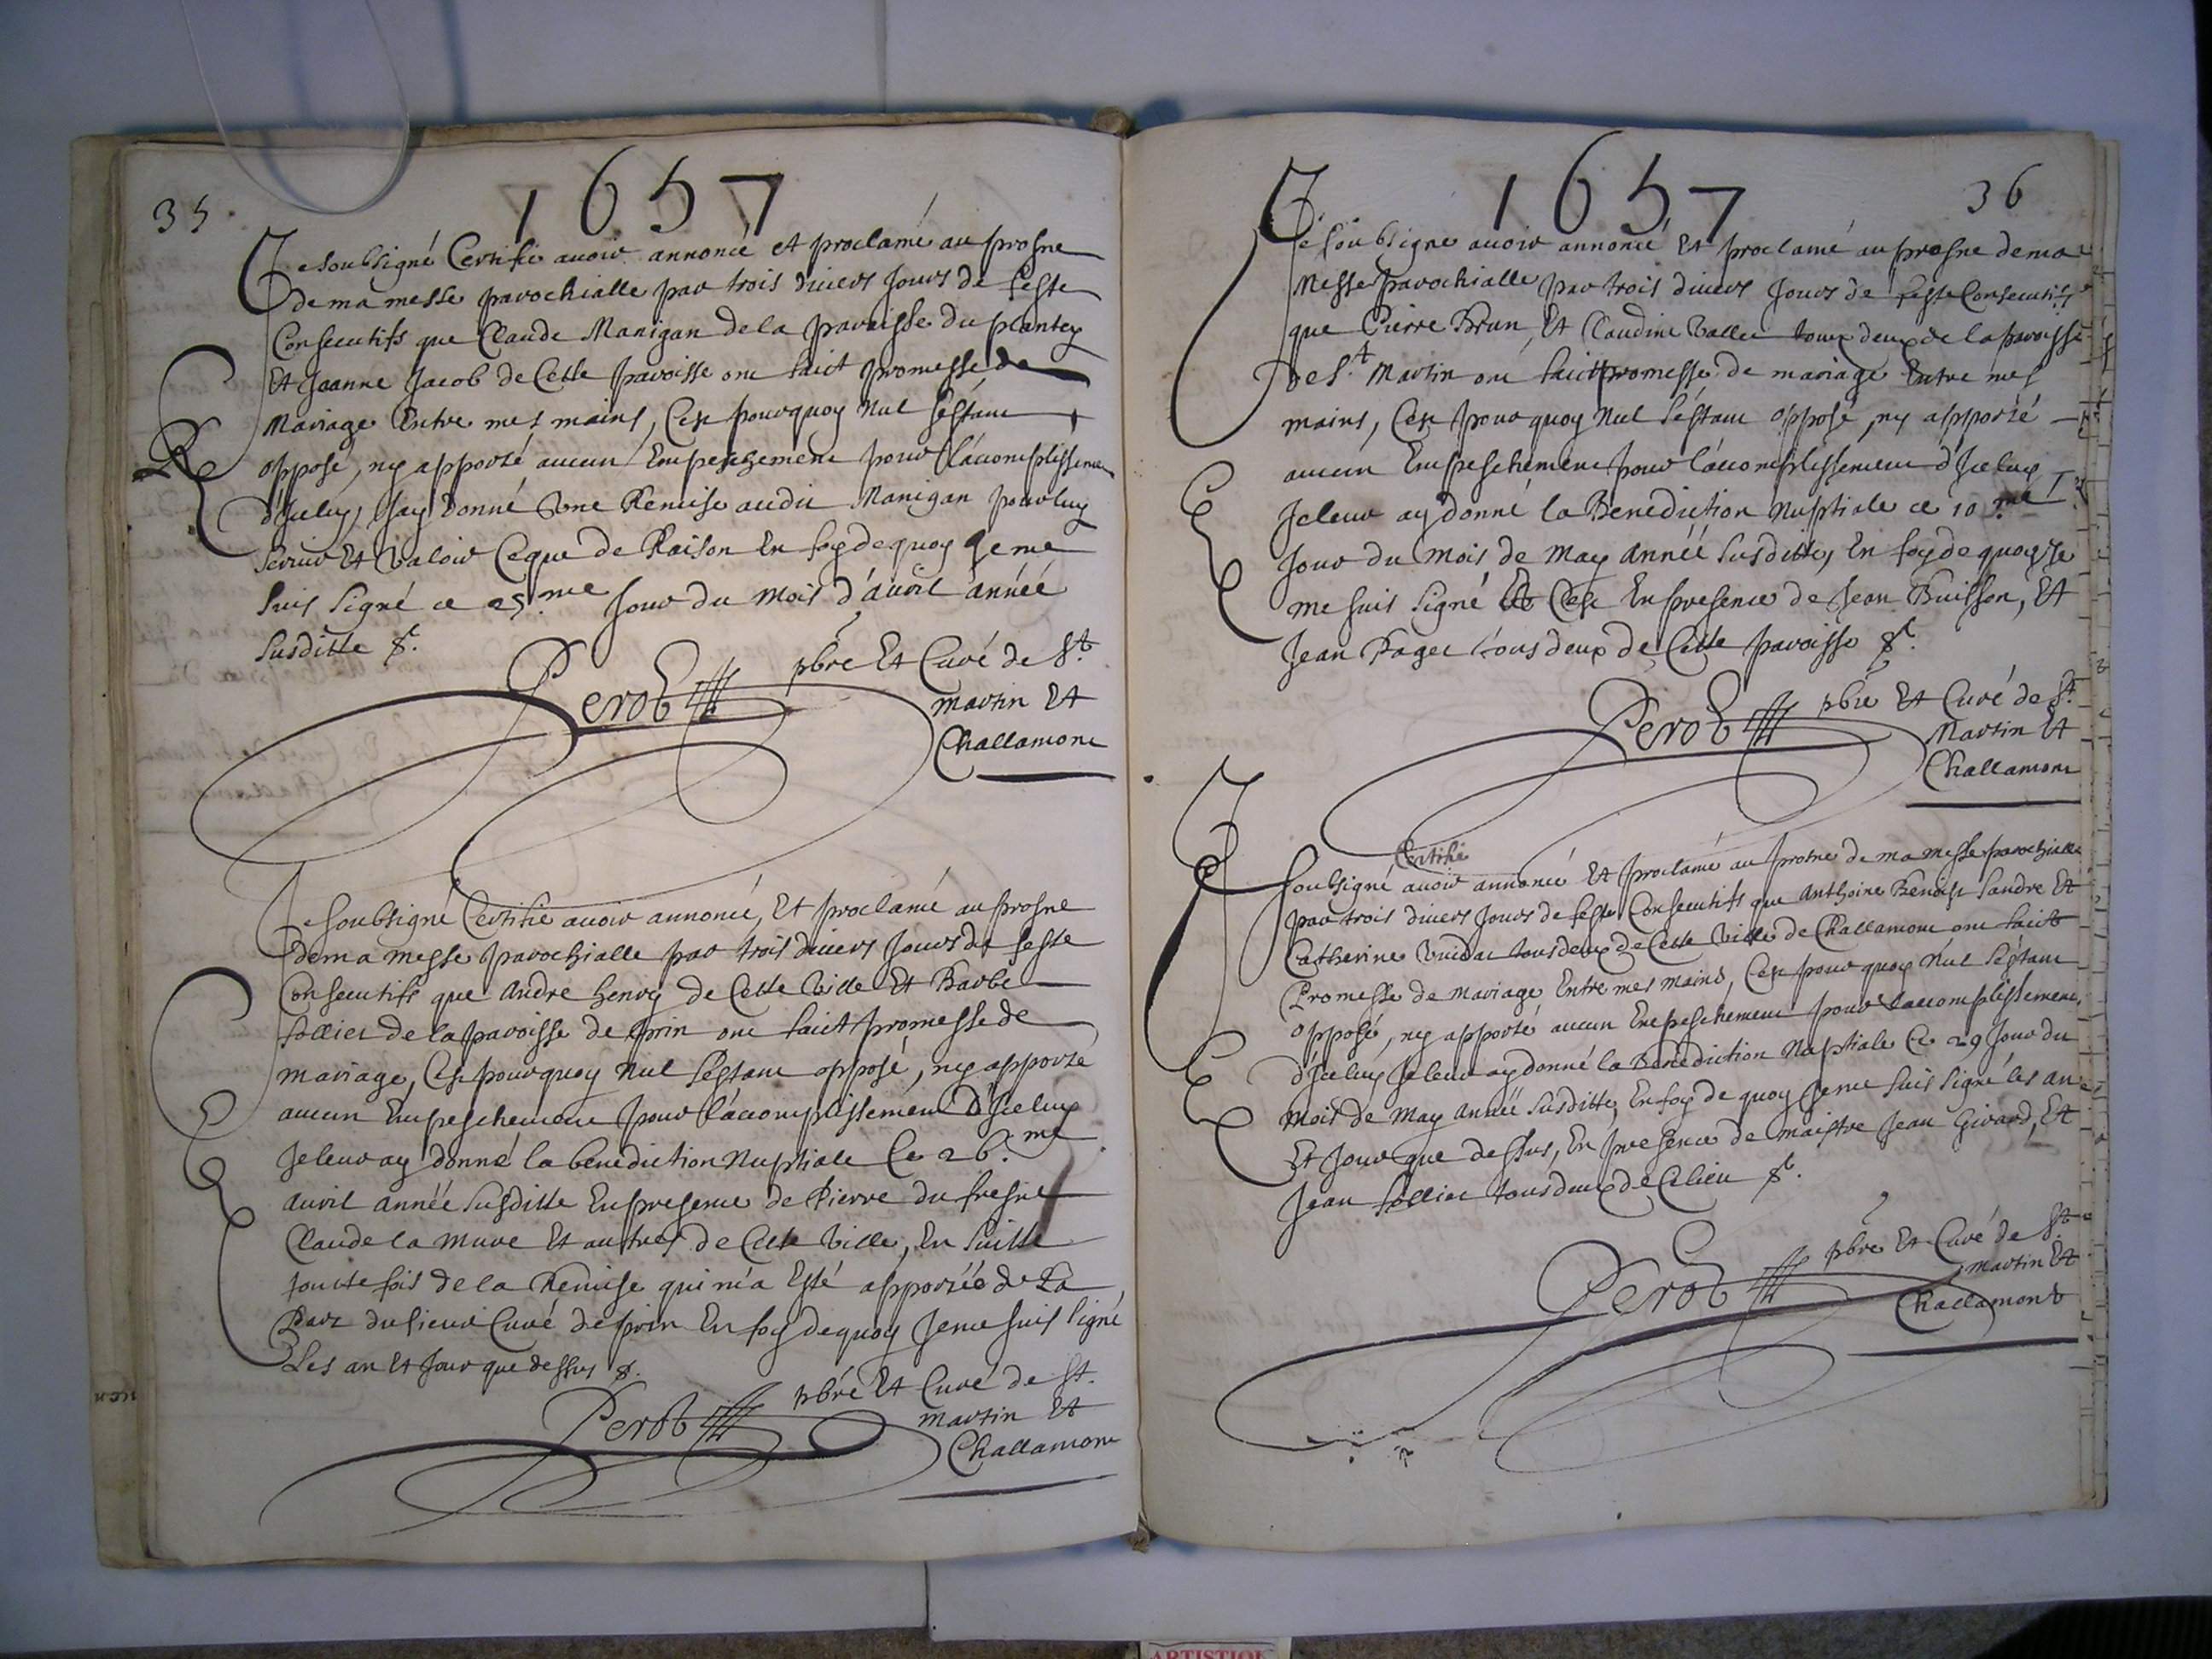 35.
1657
Je soubsigné Certifie avoir annoncé et proclamé au prosne
de ma messe parochialle par trois divers Jours de feste
Consecutifs que Claude Manigan de la paroisse du plantey
Et Jeanne Jacob de Cette paroisse ont faict promesse de
Mariage Entre mes mains, C'est pourquoy Nul s'éstant
opposé, ny apporté aucun Empeschement pour l'accomplissement
d'Iceluy, J'ay Donné Une Remise audit Manigan pour luy
Servir Et Valoir Ceque de Raison En foy de quoy Je me
suis signé ce 25.me Jour du Mois d'avril année
susditte &.
Perob pbre Et Curé de St.
martin Et
Challamont
Je soubsigné Certifie avoir annoncé, Et proclamé au prosne
de ma messe parochialle par trois divers Jours de feste
Consecutifs que Andre henry de Cette Ville Et Barbe
folliet de la paroisse de prin ont faict promesse de
mariage, C'est pourquoy Nul s'éstant opposé, ny apporté
aucun Empeschement pour l'accomplissement D'Iceluy
Je leur ay donné la benediction Nuptiale Ce 26.me
avril année susditte En presence de Pierre du fresne
Claude la Mure Et autres de Cette Ville, En suitte
toutte fois de la Remise qui m'a Esté apportée de La
Part du sieur Curé de prin En foy de quoy Je me suis signé
Les an Et Jour que dessus &.
Perob pbre Et Curé de St.
martin Et
Challamont
1657
36
Je soubsigné avoir annoncé Et proclamé au prosne de ma
Messe parochialle par trois divers Jours de feste Consecutifs
que Pierre Brun, Et Claudine Vallet tous deux de la paroisse
de St. Martin ont faict promesse de mariage Entre mes
mains, C'est pourquoy Nul s'éstant opposé, ny apporté
aucun Empeschement pour l'accomplissement d'Iceluy
Je leur ay donné la Benediction Nuptiale ce 10.me
Jour du Mois de May année susditte, En foy de quoy Je
me suis signé Et C'est En presence de Jean Buisson, Et
Jean Paget tous deux de Cette paroisse &.
Perob pbre Et Curé de St.
Martin Et
Challamont
Certifie
Je soubsigné avoir annoncé Et proclamé au prosne de ma messe parochialle
par trois divers Jours de feste Consecutifs que Anthoine Benoist Landre Et
Catherine tous deux de Cette Ville de Challamont ont faict
Promesse de Mariage Entre mes mains, C'est pourquoy Nul s'éstant
opposé, ny apporté aucun Empeschement pour l'accomplissement,
d'Iceluy Je leur ay donné la Benediction Nuptiale Ce 29 Jour du
Mois de May année susditte, En foy de quoy Je me suis signé les an
Et Jour que dessus, En presence de maistre Jean Girard, Et
Jean follier tous deux de Ce lieu &.
Perob pbre Et Curé de St.
martin Et
Challamont